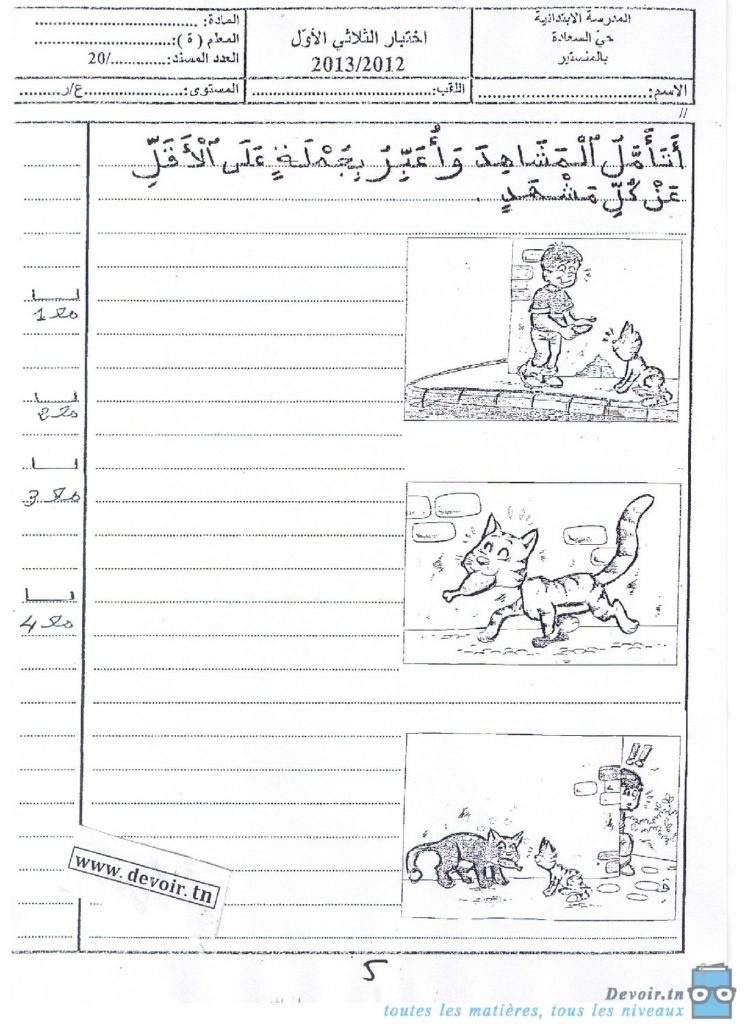 المدرسة الابتدائية
حيّ السعادة
بالمنستير
اختبار الثلاثي الأوّل
2013/2012
المادة: ................................
المعلم ( ة ):..........................
العدد المسند:............../20
الاسم:................................
اللقب:................................
المستوى:....................ع/ر.........
أَتَأَمَّلُ ٱلْمَشَاهِدَ وَأُعَبِّرُ بِجُمْلَةٍ عَلَى ٱلْأَقَلِّ
عَنْ كُلِّ مَشْهَدٍ .
مع1
مع2
مع3
مع4
!!
www.devoir.tn
5
Devoir.tn
toutes les matières, tous les niveaux